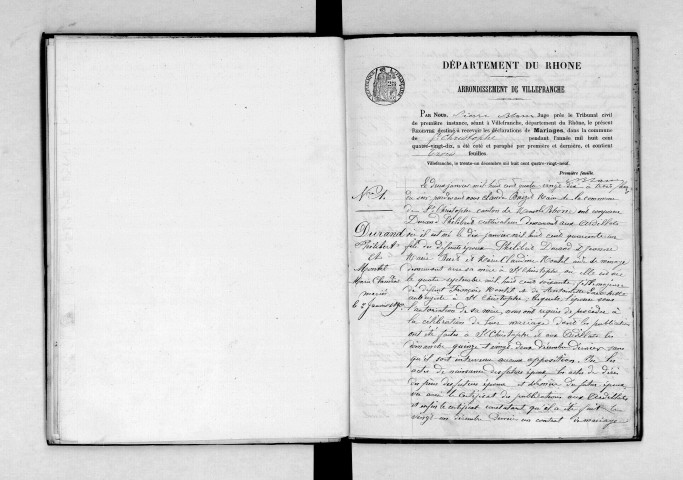 DÉPARTEMENT DU RHONE
ARRONDISSEMENT DE VILLEFRANCHE
PAR NOUS, Juge près le Tribunal civil
de première instance, séant à Villefranche, département du Rhône, le présent
Registre destiné à recevoir les déclarations de Mariages, dans la commune
de St Christophe pendant l'année mil huit cent
quatre-vingt-dix, a été coté et paraphé par première et dernière, et contient
trois feuilles.
Villefranche, le trente-un décembre mil huit cent quatre-vingt-neuf.
Première feuille.
Le deux janvier mil huit cent quatre vingt dix à
N° 1.
du soir, pardevant nous Claude Maire de la commune
de St Christophe canton de Monsols Rhône, ont comparu
Durand Philibert cultivateur demeurant aux Ardillats
Durand
Philibert
et
Montel
Marie Claudine
mariés
le 2 janvier 1890
où il est né le dix janvier mil huit cent quarante un
fils de défunts époux Philibert Durand et Jeanne
Marie et Marie Claudine Montel aide de ménage
demeurant avec sa mère à St Christophe où elle est née
le quinze septembre mil huit cent soixante, fille majeure
de défunt François Montel et de Antoinette
à St Christophe; laquelle épouse sous
l'autorisation de sa mère, nous ont requis de procéder à
la célébration de leur mariage dont les publications
ont été faites à St Christophe et aux Ardillats les
dimanche quinze et vingt deux décembre dernier sans
qu'il soit intervenu aucune opposition. Vu les
actes de naissance des futurs époux, les actes de décès
des père des futurs époux et du futur époux,
vu aussi le certificat des publications aux Ardillats
et enfin le certificat constatant qu'il a été fait le
vingt un décembre dernier un contrat de mariage